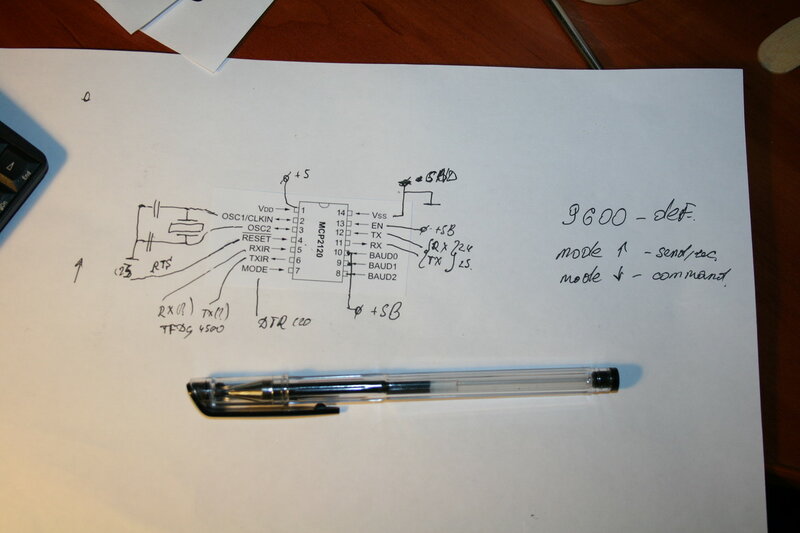 +5
GND
VDD
OSC1/CLKIN
OSC2
RESET
RXIR
TXIR
MODE
1
2
3
4
5
6
7
MCP2120
14
13
12
11
10
9
8
VSS
EN
TX
RX
BAUD0
BAUD1
BAUD2
+5B
RX 24
TX 25
RTS
RX(?) TX(?)
TFDS 4500
DTR
+5B
9600 - def.
mode ↑ - send/rec
mode ↓ - command.